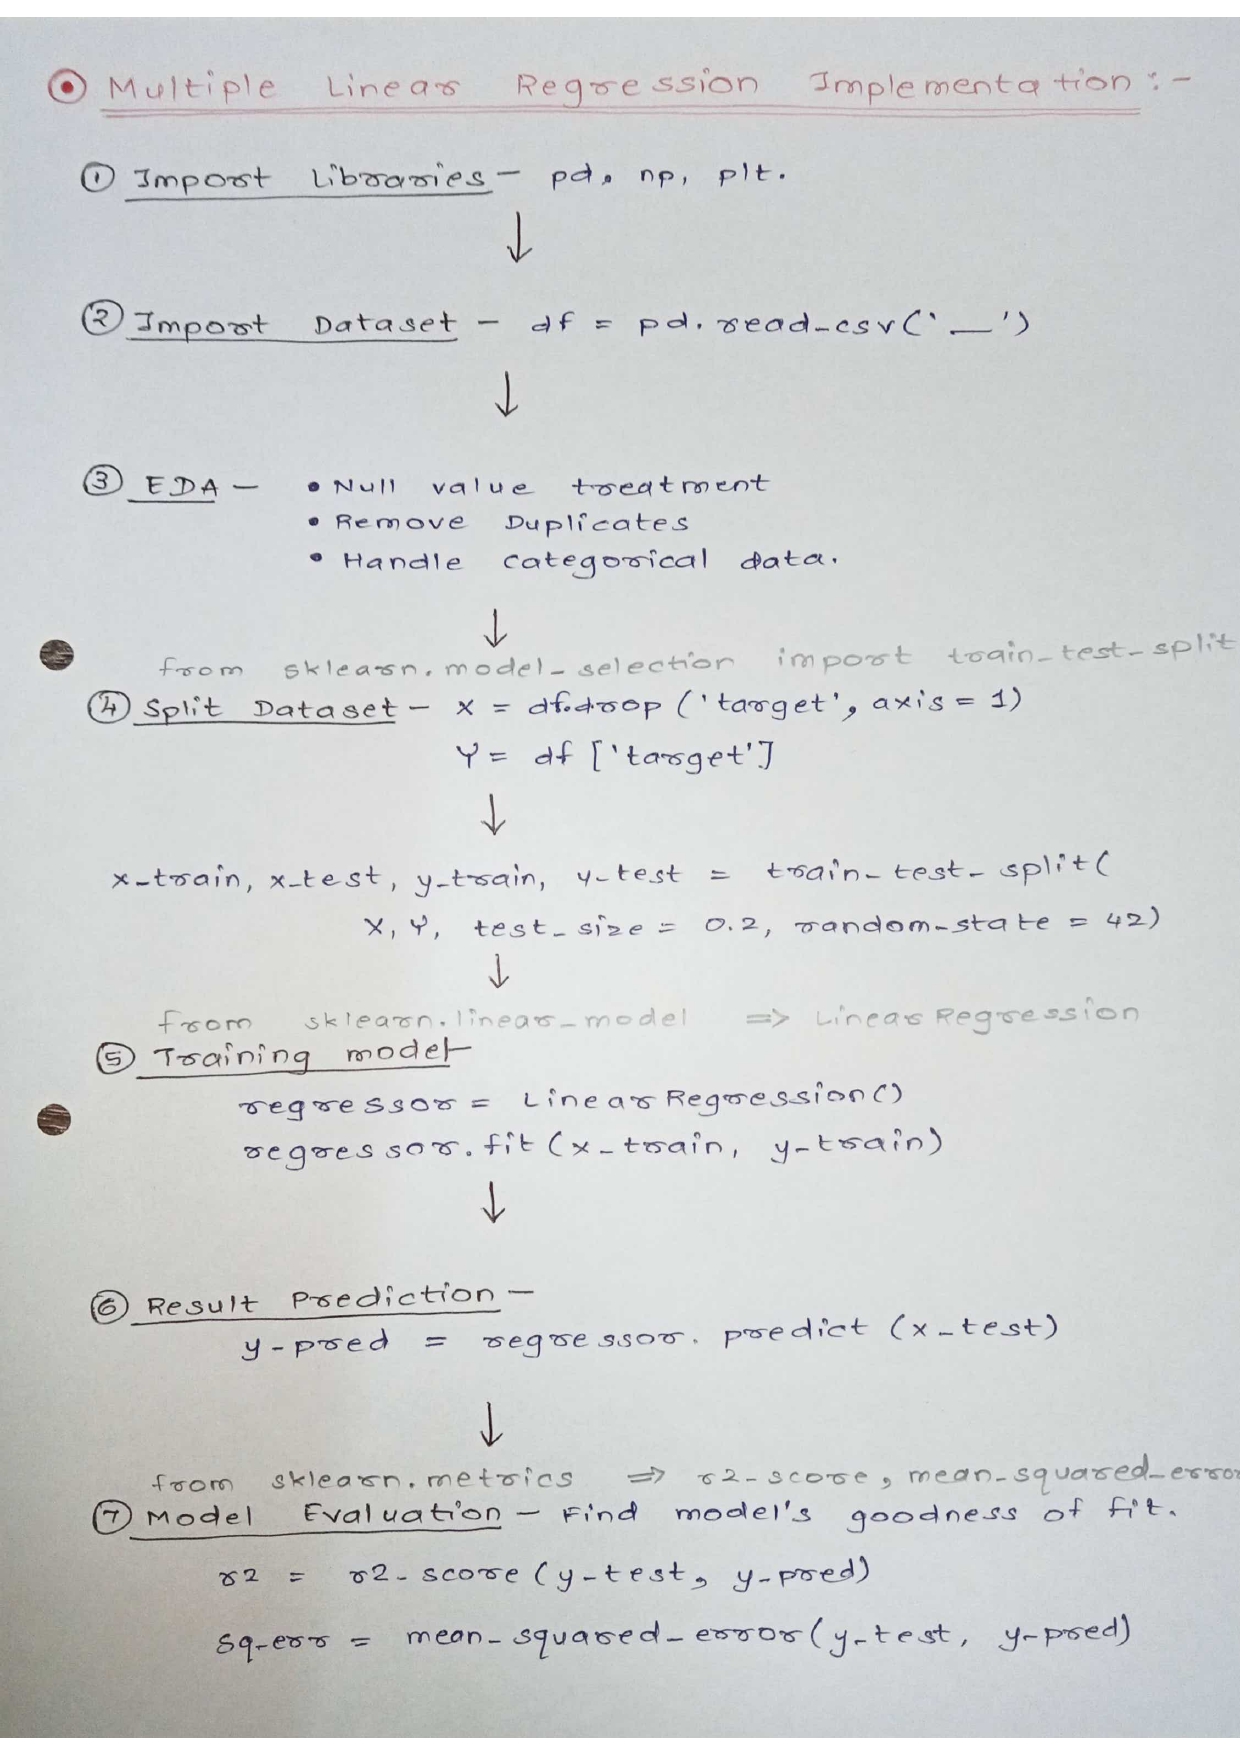 Multiple Linear Regression Implementation :-
① Import Libraries - pd, np, plt.
↓
② Import Dataset - df = pd.read_csv('__')
↓
③ EDA - • Null value treatment
• Remove Duplicates
• Handle categorical data.
↓
from sklearn.model_selection import train_test_split
④ Split Dataset - X = df.drop('target', axis = 1)
Y = df ['target']
↓
x_train, x_test, y_train, y_test = train_test_split(
X, Y, test_size = 0.2, random_state = 42)
↓
from sklearn.linear_model => LinearRegression
⑤ Training model-
regressor = LinearRegression()
regressor.fit(x_train, y_train)
↓
⑥ Result Prediction -
y_pred = regressor.predict(x_test)
↓
from sklearn.metrics => r2_score, mean_squared_error
⑦ Model Evaluation - Find model's goodness of fit.
r2 = r2_score(y_test, y_pred)
sq_err = mean_squared_error(y_test, y_pred)